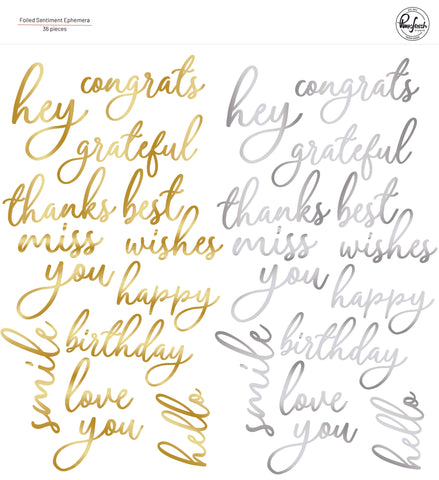 Foiled Sentiment Ephemera
36 pieces
Pinkfresh
hey
congrats
grateful
thanks
best
miss
wishes
you
happy
smile
birthday
love
you
hello
hey
congrats
grateful
thanks
best
miss
wishes
you
happy
smile
birthday
love
you
hello